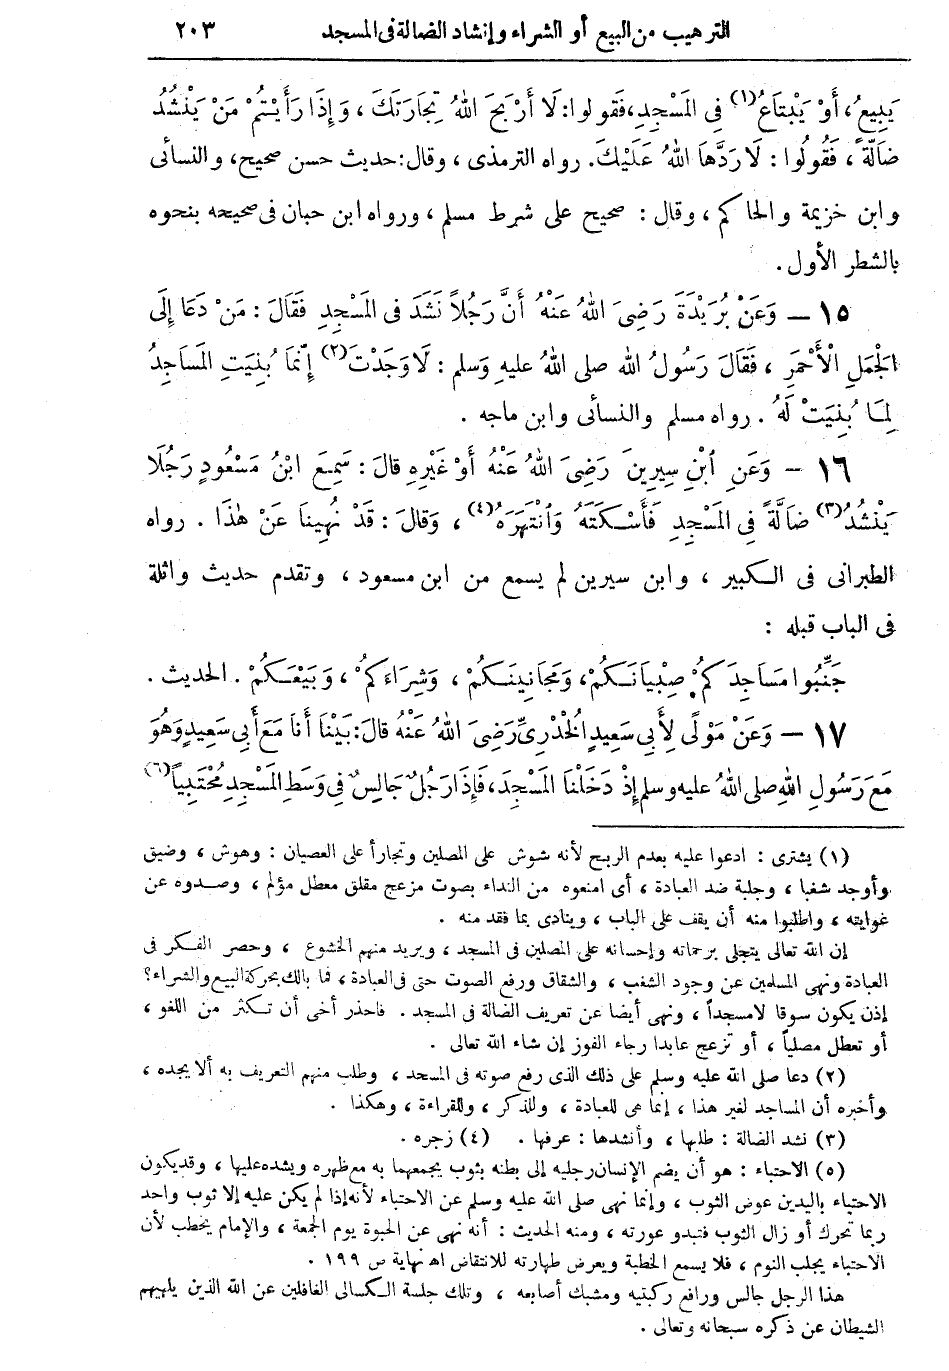 الترهيب من البيع أو الشراء وإنشاد الضالة فى المسجد ٢٠٣
يَبِيعُ، أَوْ يَبْتَاعُ(١) فِى المَسْجِدِ، فَقُولوا: لَا أَرْبَحَ اللهُ تِجَارَتَكَ، وَإِذَا رَأَيْتُمْ مَنْ يَنْشُدُ
ضَالَّةً، فَقُولُوا: لَا رَدَّهَا اللهُ عَلَيْكَ. رواه الترمذى، وقال: حديث حسن صحيح، والنسائى
وابن خزيمة والحاكم، وقال: صحيح على شرط مسلم، ورواه ابن حبان فى صحيحه بنحوه
بالشطر الأول.
١٥ – وَعَنْ بُرَيْدَةَ رَضِىَ اللهُ عَنْهُ أَنَّ رَجُلاً نَشَدَ فى المَسْجِدِ فَقَالَ: مَنْ دَعَا إِلَى
الجَمَلِ الْأَحْمَرِ، فَقَالَ رَسُولُ الله صلى اللهُ عليهِ وَسلم: لَا وَجَدْتَ(٢) إِنَّمَا بُنِيَتِ المَسَاجِدُ
لِمَا بُنِيَتْ لَهُ. رواه مسلم والنسائى وابن ماجه.
١٦ – وَعَنِ ابْنِ سِيرِينَ رَضِىَ اللهُ عَنْهُ أَوْ غَيْرِهِ قالَ: سَمِعَ ابْنُ مَسْعُودٍ رَجُلًا
يَنْشُدُ(٣) ضَالَّةً فِى المَسْجِدِ فَأَسْكَتَهُ وَانْتَهَرَهُ(٤)، وَقالَ: قَدْ نُهِينَا عَنْ هٰذَا. رواه
الطبرانى فى الكبير، وابن سيرين لم يسمع من ابن مسعود، وتقدم حديث واثلة
فى الباب قبله:
جَنِّبُوا مَسَاجِدَكُمْ صِبْيَانَكُمْ، وَمَجَانِينَكُمْ، وَشِرَاءَكُمْ، وَبَيْعَكُمْ. الحديث.
١٧ – وَعَنْ مَوْلًى لِأَبِى سَعِيدٍ الْخُدْرِىِّ رَضِىَ اللهُ عَنْهُ قالَ: بَيْنَا أَنَا مَعَ أَبِى سَعِيدٍ وَهُوَ
مَعَ رَسُولِ اللهِ صلى اللهُ عليه وسلم إِذْ دَخَلْنَا المَسْجِدَ، فَإِذَا رَجُلٌ جَالِسٌ فِى وَسَطِ المَسْجِدِ مُحْتَبِياً(٦)
(١) يشترى: ادعوا عليه بعدم الربح لأنه شوش على المصلين وتجارأ على العصيان: وهوش، وضيق
وأوجد شغبا، وجلبة ضد العبادة، أى امنعوه من النداء بصوت مزعج مقلق معطل مؤلم، وصدوه عن
غوايته، واطلبوا منه أن يقف على الباب، وينادى بما فقد منه.
إن الله تعالى يتجلى برحماته وإحسانه على المصلين فى المسجد، ويريد منهم الخشوع، وحصر الفكر فى
العبادة ونهى المسلمين عن وجود الشغب، والشقاق ورفع الصوت حتى فى العبادة، فما بالك بحركة البيع والشراء؟
إذن يكون سوقا لامسجداً، ونهى أيضا عن تعريف الضالة فى المسجد. فاحذر أخى أن تكثر من اللغو،
أو تعطل مصلياً، أو تزعج عابدا رجاء الفوز إن شاء الله تعالى.
(٢) دعا صلى الله عليه وسلم على ذلك الذى رفع صوته فى المسجد، وطلب منهم التعريف به ألا يجده،
وأخبره أن المساجد لغير هذا، إنما هى للعبادة، وللذكر، وللقراءة، وهكذا.
(٣) نشد الضالة: طلبها، وأنشدها: عرفها. (٤) زجره.
(٥) الاحتباء: هو أن يضم الإنسان رجليه إلى بطنه بثوب يجمعهما به مع ظهره ويشده عليها، وقد يكون
الاحتباء باليدين عوض الثوب، وإنما نهى صلى الله عليه وسلم عن الاحتباء لأنه إذا لم يكن عليه إلا ثوب واحد
ربما تحرك أو زال الثوب فتبدو عورته، ومنه الحديث: أنه نهى عن الحبوة يوم الجمعة، والإمام يخطب لأن
الاحتباء يجلب النوم، فلا يسمع الخطبة ويعرض طهارته للانتقاض اهـ نهاية ص ١٩٩.
هذا الرجل جالس ورافع ركبتيه ومشبك أصابعه، وتلك جلسة الكسالى الغافلين عن الله الذين يلهيهم
الشيطان عن ذكره سبحانه وتعالى.